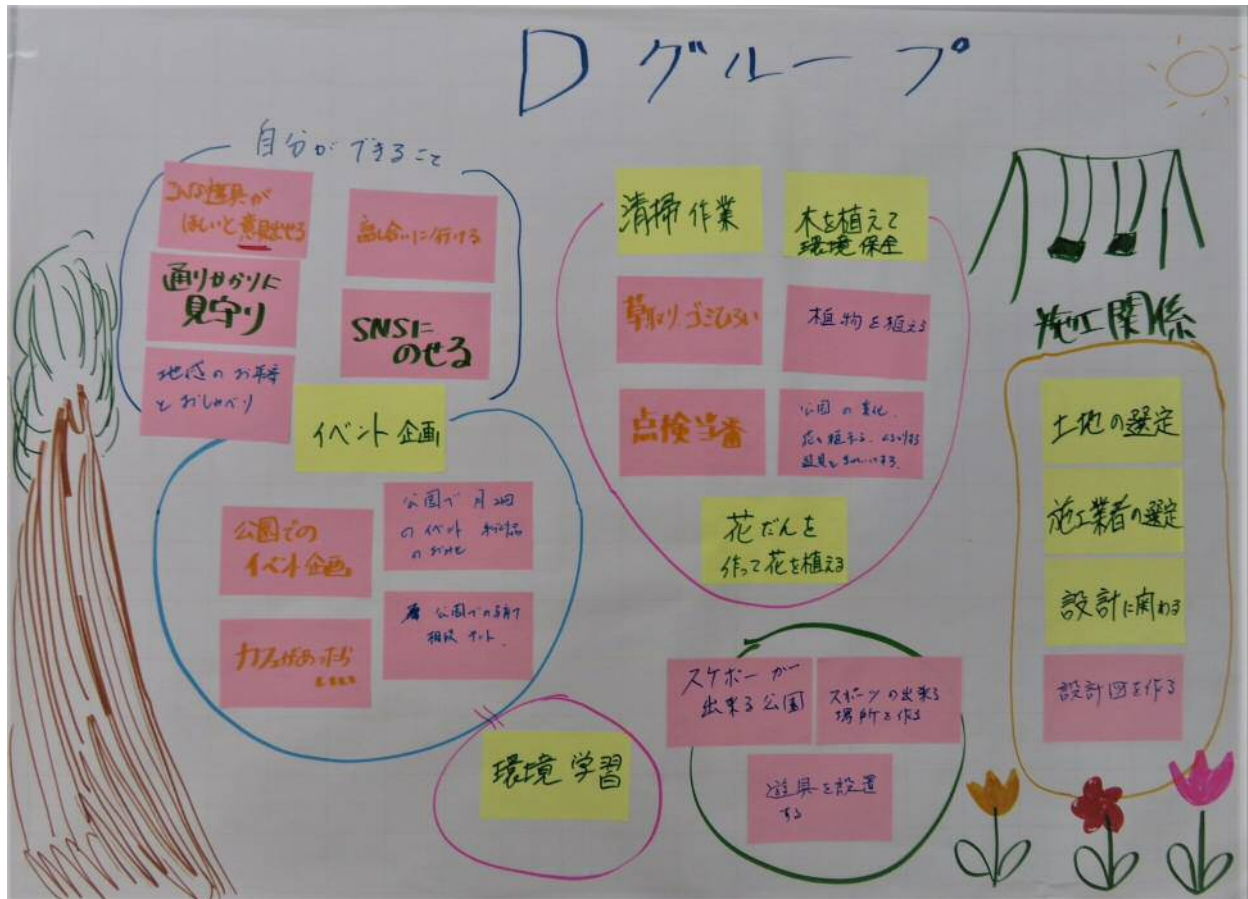 Dグループ
自分ができること
こんな遊具が
ほしいと意見出せる
話し合いに行ける
通りがかりに
見守り
SNSに
のせる
地域のお年寄
とおしゃべり
イベント企画
公園での
イベント企画
公園で月2回
のイベント
カフェがあったら
公園での子育て
相談
清掃作業
木を植えて
環境保全
草取り、ゴミひろい
植物を植える
点検当番
公園の美化、
花を植える、
遊具をきれいにする。
花だんを
作って花を植える
環境学習
スケボーが
出来る公園
スポーツの出来る
場所を作る
遊具を設置
する
施工関係
土地の選定
施工業者の選定
設計に関わる
設計図を作る